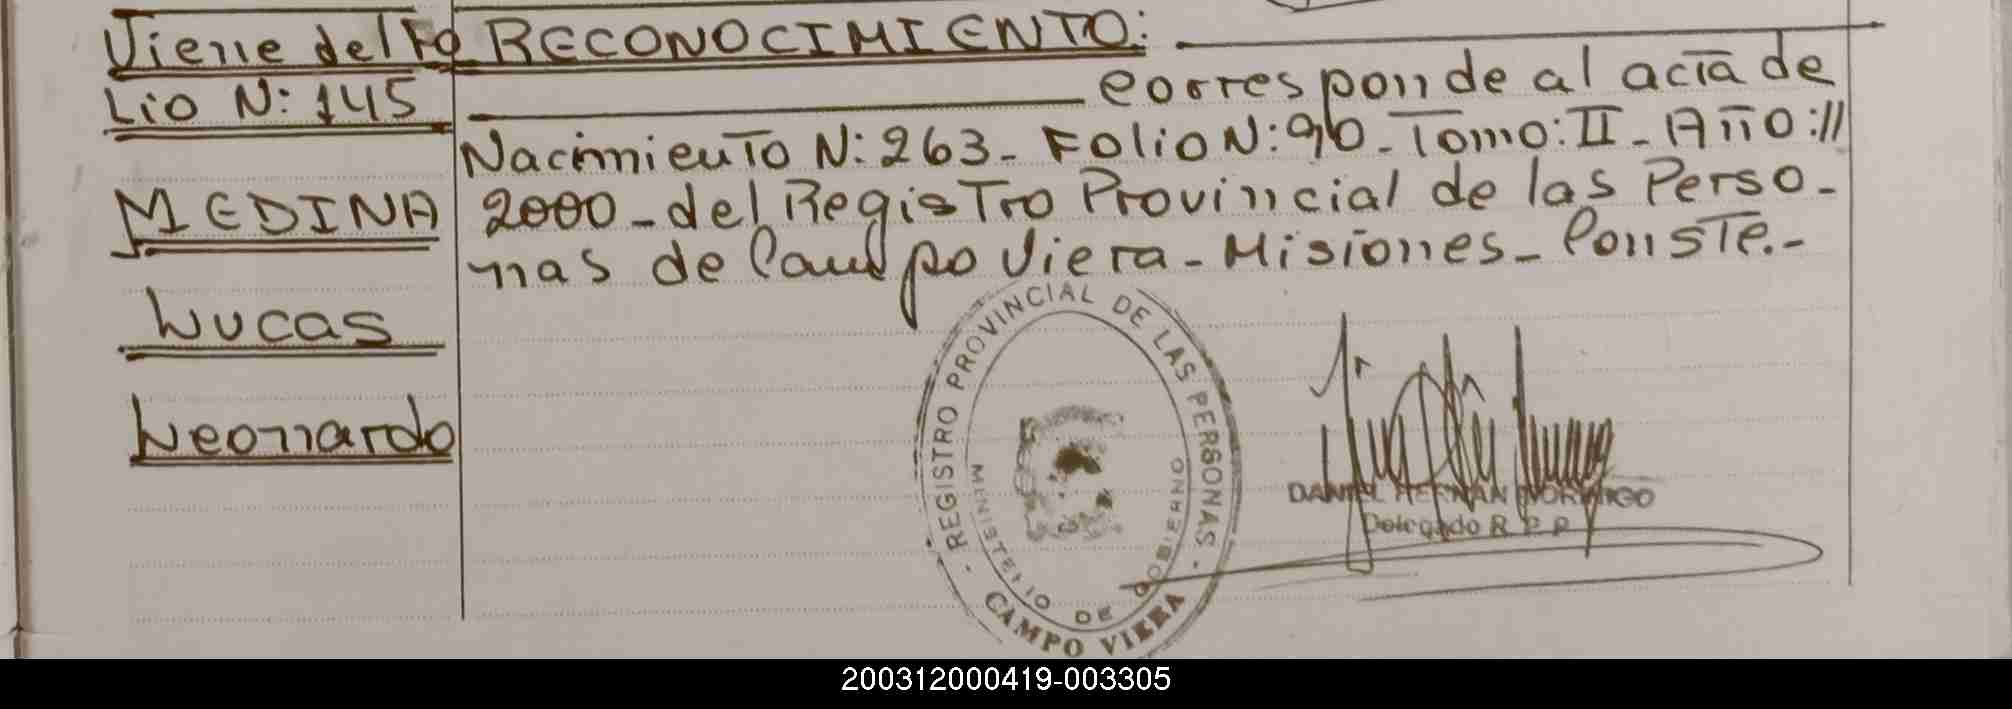 Viene del Fo
Lio N: 145
MEDINA
Lucas
Leonardo
RECONOCIMIENTO:
corresponde al acta de
Nacimiento N: 263 - Folio N: 90 - Tomo: II - Año: //
2000 - del Registro Provincial de las Perso-
nas de Campo Viera - Misiones - Conste.-
REGISTRO PROVINCIAL DE LAS PERSONAS
MINISTERIO DE GOBIERNO
CAMPO VIERA
DANIEL HERNAN
Delegado R P P
200312000419-003305